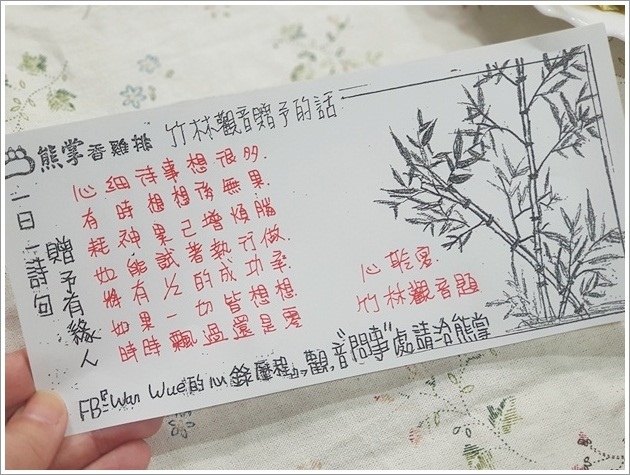 熊掌香雞排 竹林觀音贈予的話
一日一詩句
贈予有緣人
心細待事想很多.
有時想想後無果.
耗神果己增煩腦
如能試著執行做.
將有½的成功率
如果一切皆想想.
時時飄過還是零
心乾寬.
竹林觀音題
FB:Wan Wue的心錄歷程,觀"音問事"處請洽熊掌